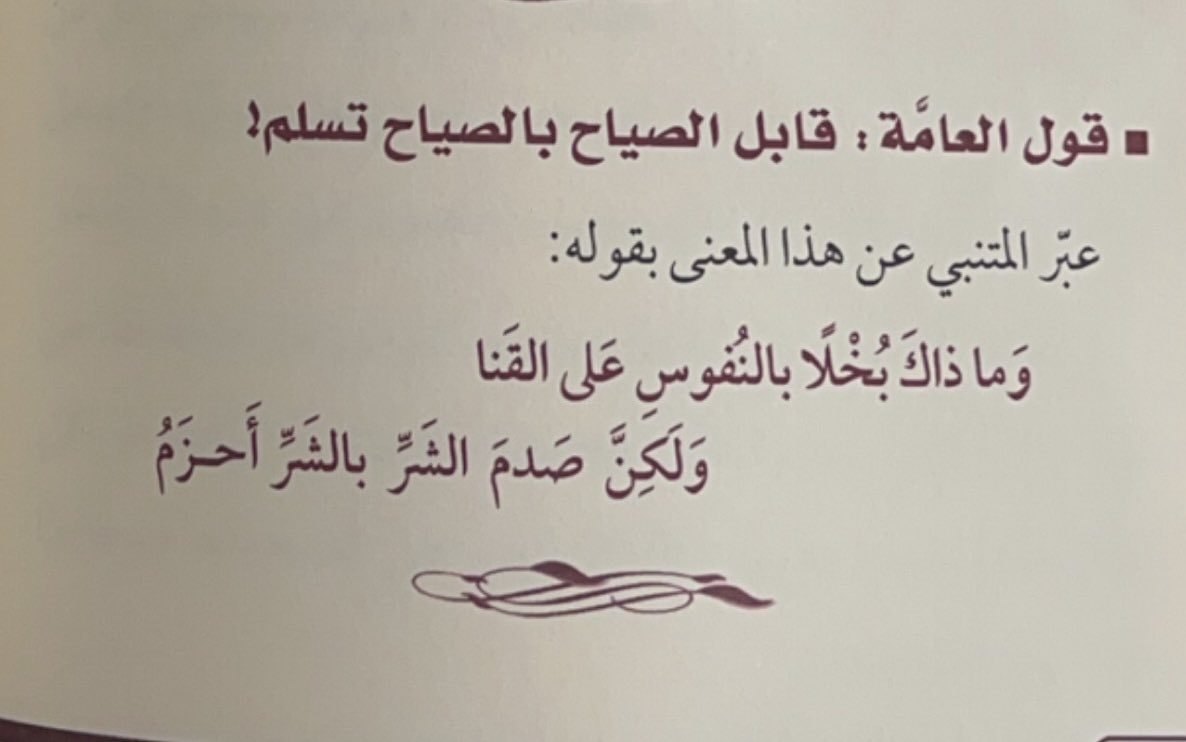 ▪ قول العامَّة: قابل الصياح بالصياح تسلم!
عبّر المتنبي عن هذا المعنى بقوله:
وَما ذاكَ بُخْلًا بالنُفوسِ عَلى القَنا
وَلَكِنَّ صَدمَ الشَرِّ بالشَرِّ أَحـزَمُ